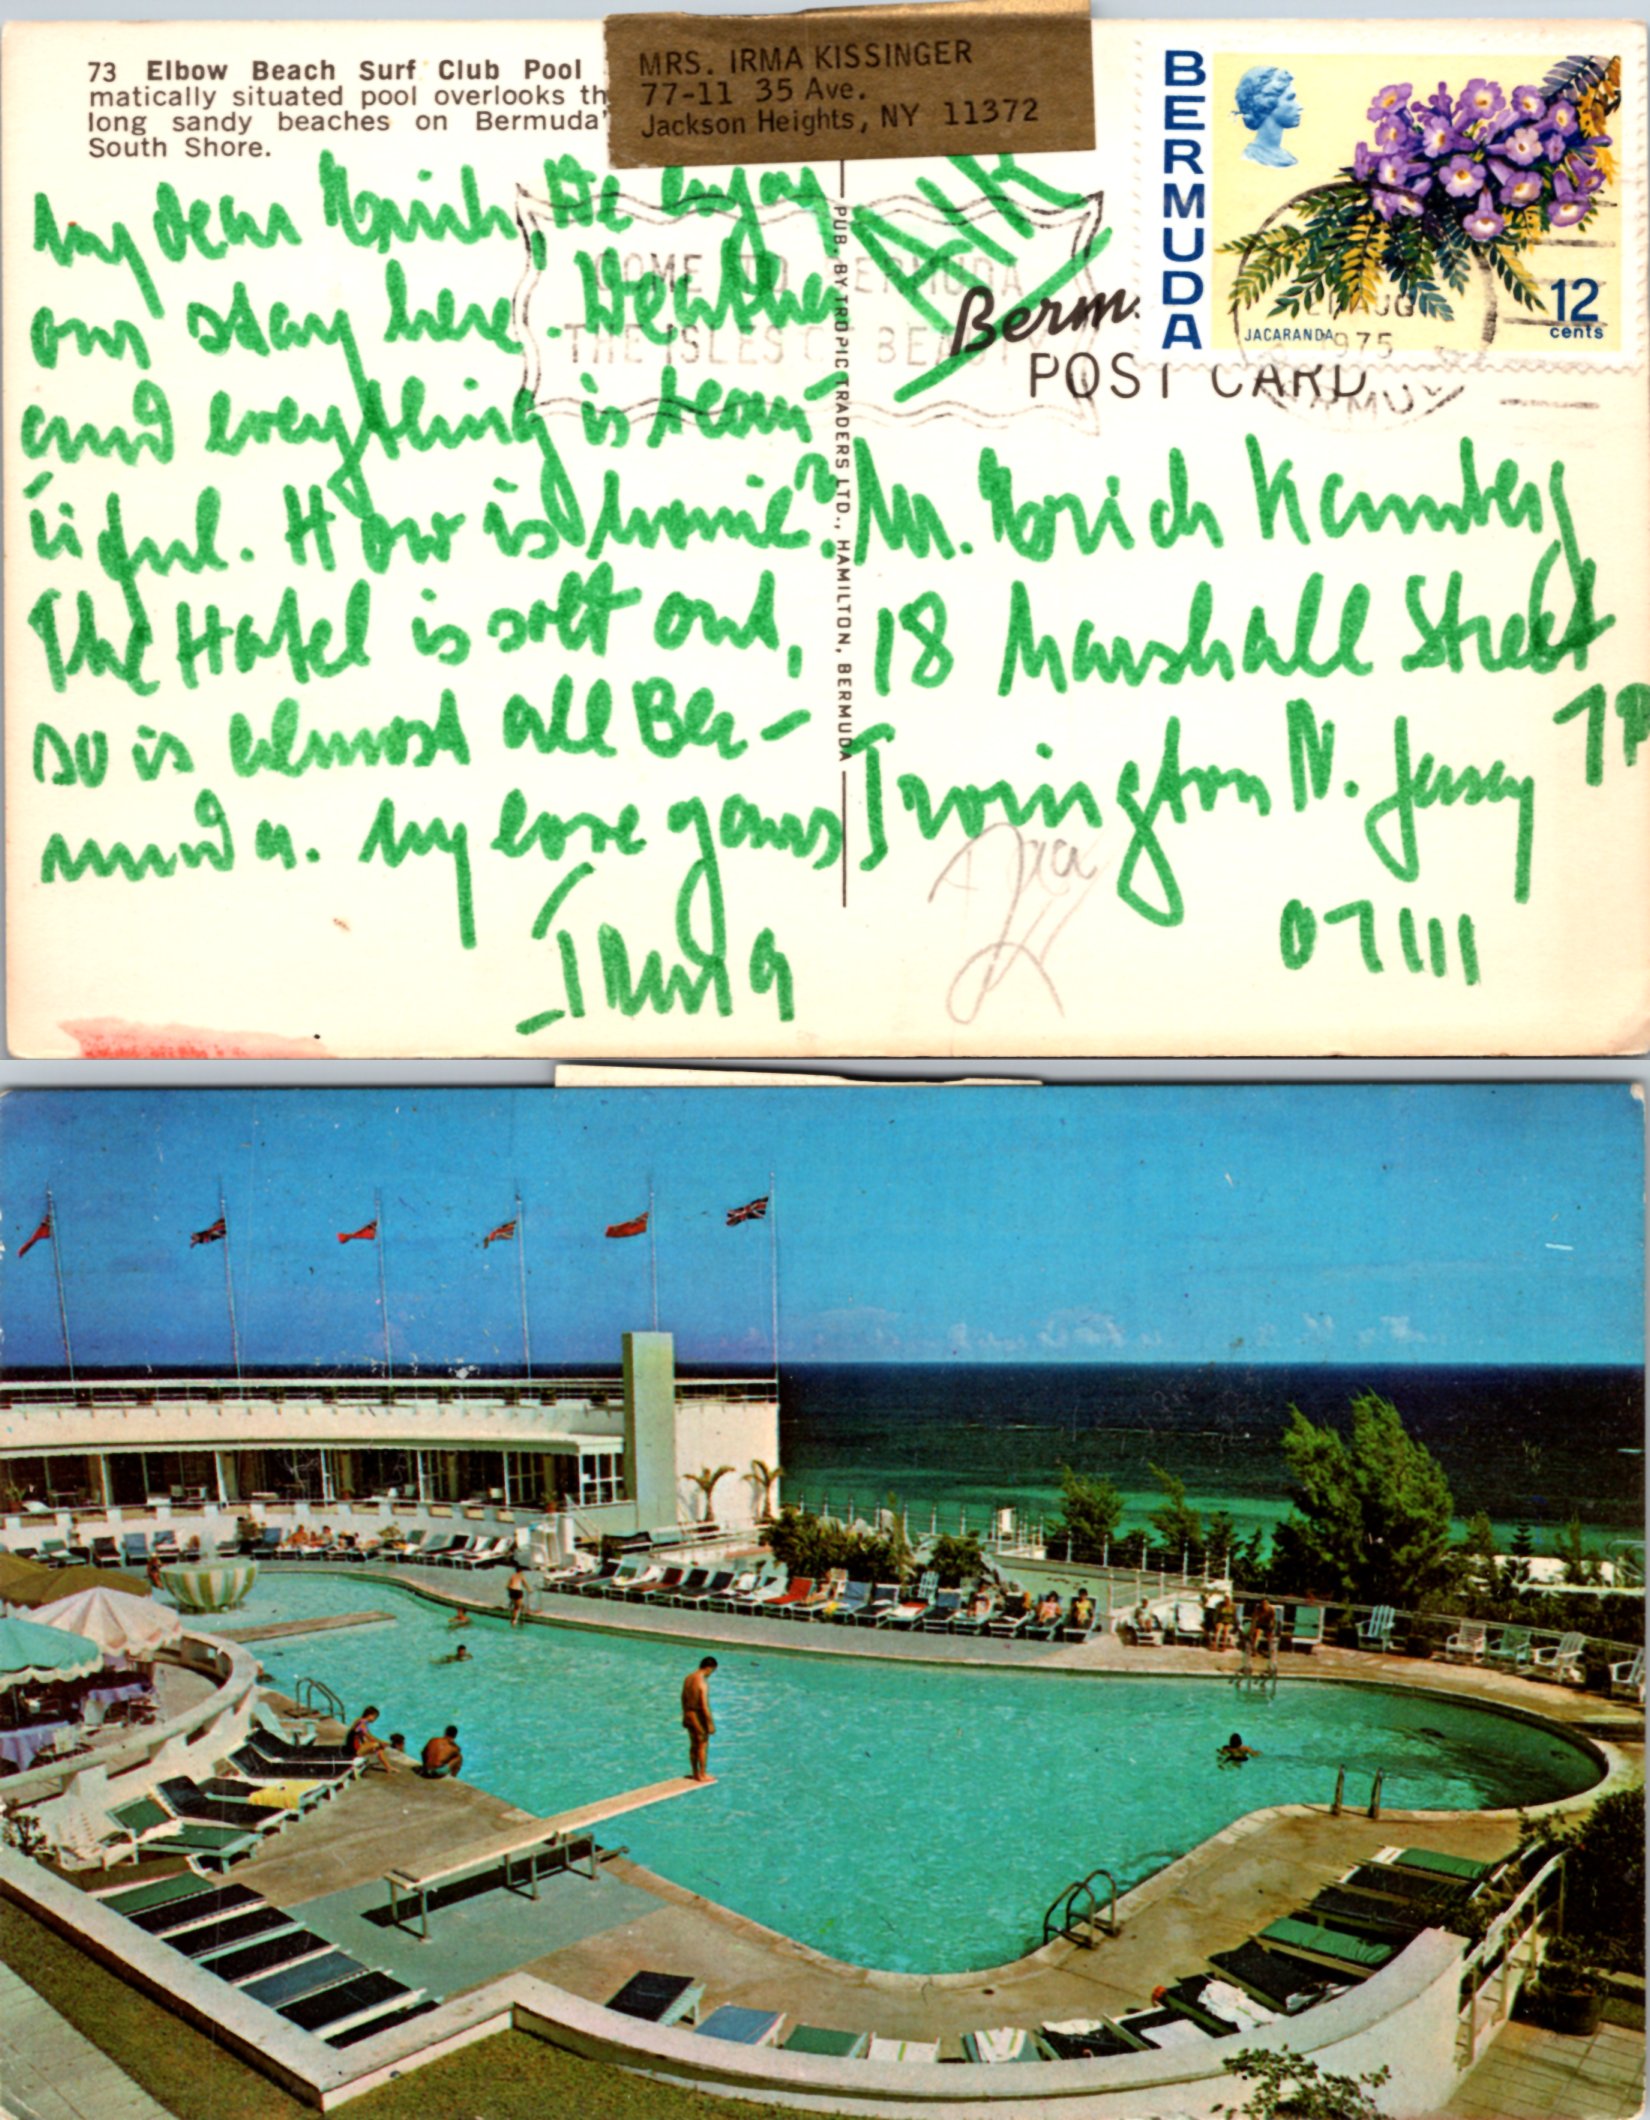 73 Elbow Beach Surf Club Pool
matically situated pool overlooks th
long sandy beaches on Bermuda'
South Shore.
MRS. IRMA KISSINGER
77-11 35 Ave.
Jackson Heights, NY 11372
BERMUDA
JACARANDA
12
cents
AUG
1975
COME TO BERMUDA
THE ISLES OF BEAUTY
AIR
Berm.
POST CARD
PUB. BY TROPIC TRADERS LTD., HAMILTON, BERMUDA
My dear Morich, We enjoy
our stay here. Weather
and everything is beau-
tiful. How is home?
The Hotel is solt out,
so is almost all Ber-
muda. My love yours
Irma
Mr. Morich Kamberg
18 Marshall Street
Irvington N. Jersey
07111